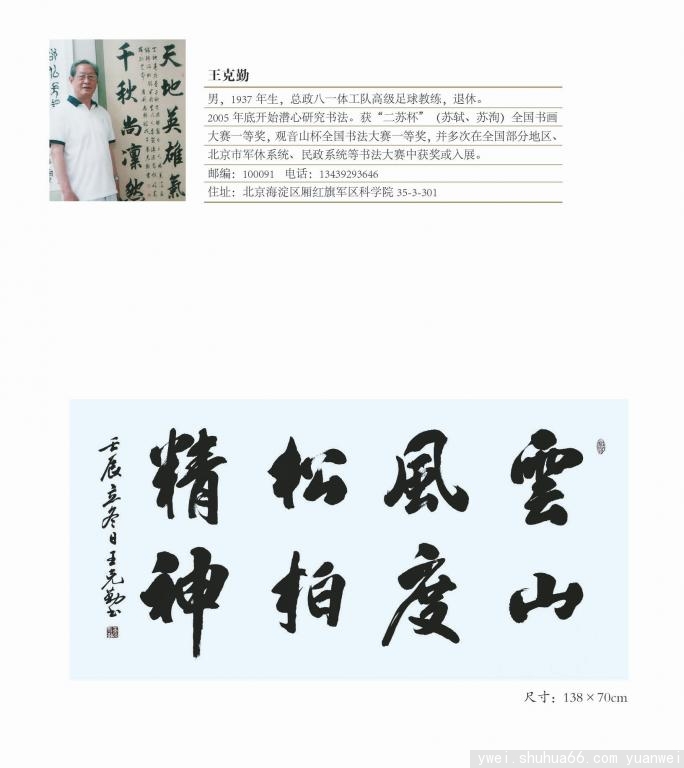 天地英雄氣
千秋尚凛然
王克勤
男，1937 年生，总政八一体工队高级足球教练，退休。
2005 年底开始潜心研究书法。获“二苏杯”（苏轼、苏洵）全国书画
大赛一等奖，观音山杯全国书法大赛一等奖，并多次在全国部分地区、
北京市军休系统、民政系统等书法大赛中获奖或入展。
邮编：100091 电话：13439293646
住址：北京海淀区厢红旗军区科学院 35-3-301
雲山
風度
松柏
精神
壬辰立冬日王克勤书
尺寸：138×70cm
ywei.shuhua66.com yuanwei